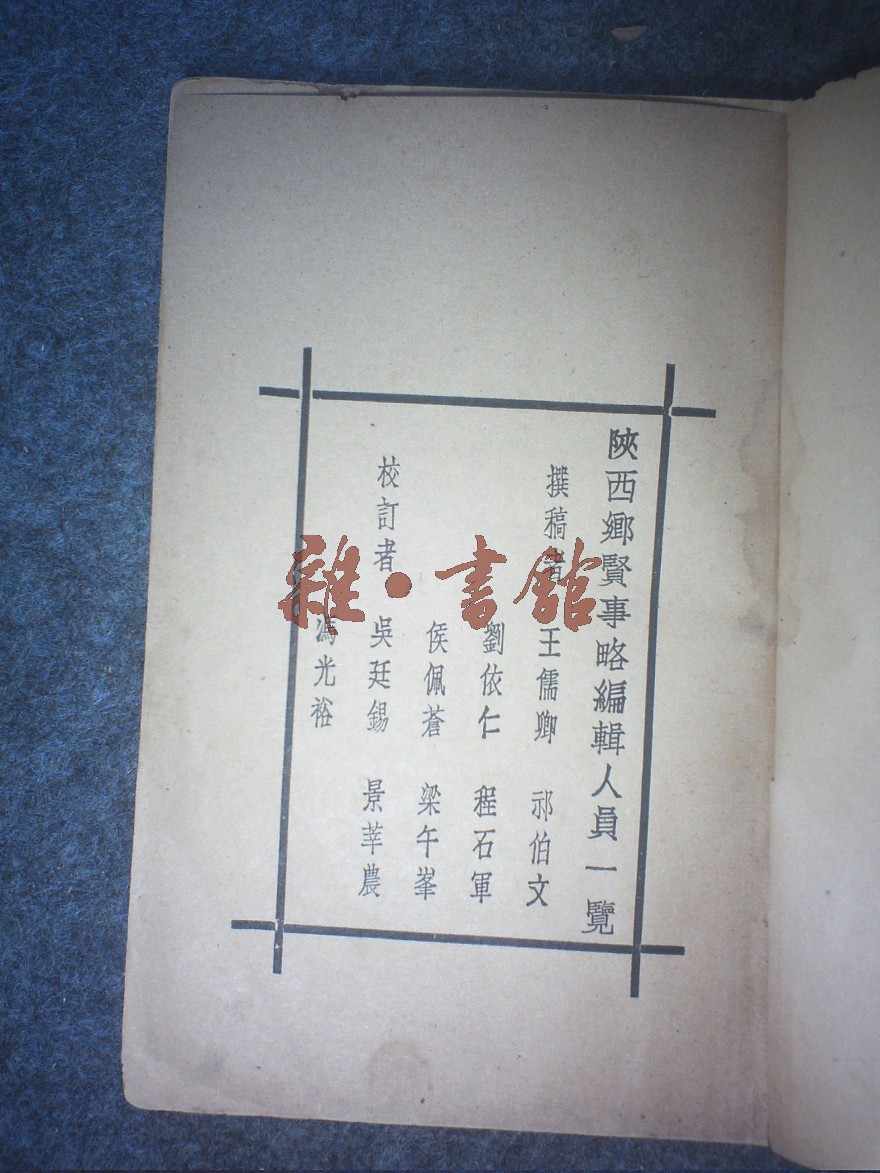 陝西鄉賢事略編輯人員一覽
撰稿者 王儒卿 祁伯文
劉依仁 程石軍
侯佩蒼 梁午峯
校訂者 吳廷錫 景莘農
馮光裕
雜·書館